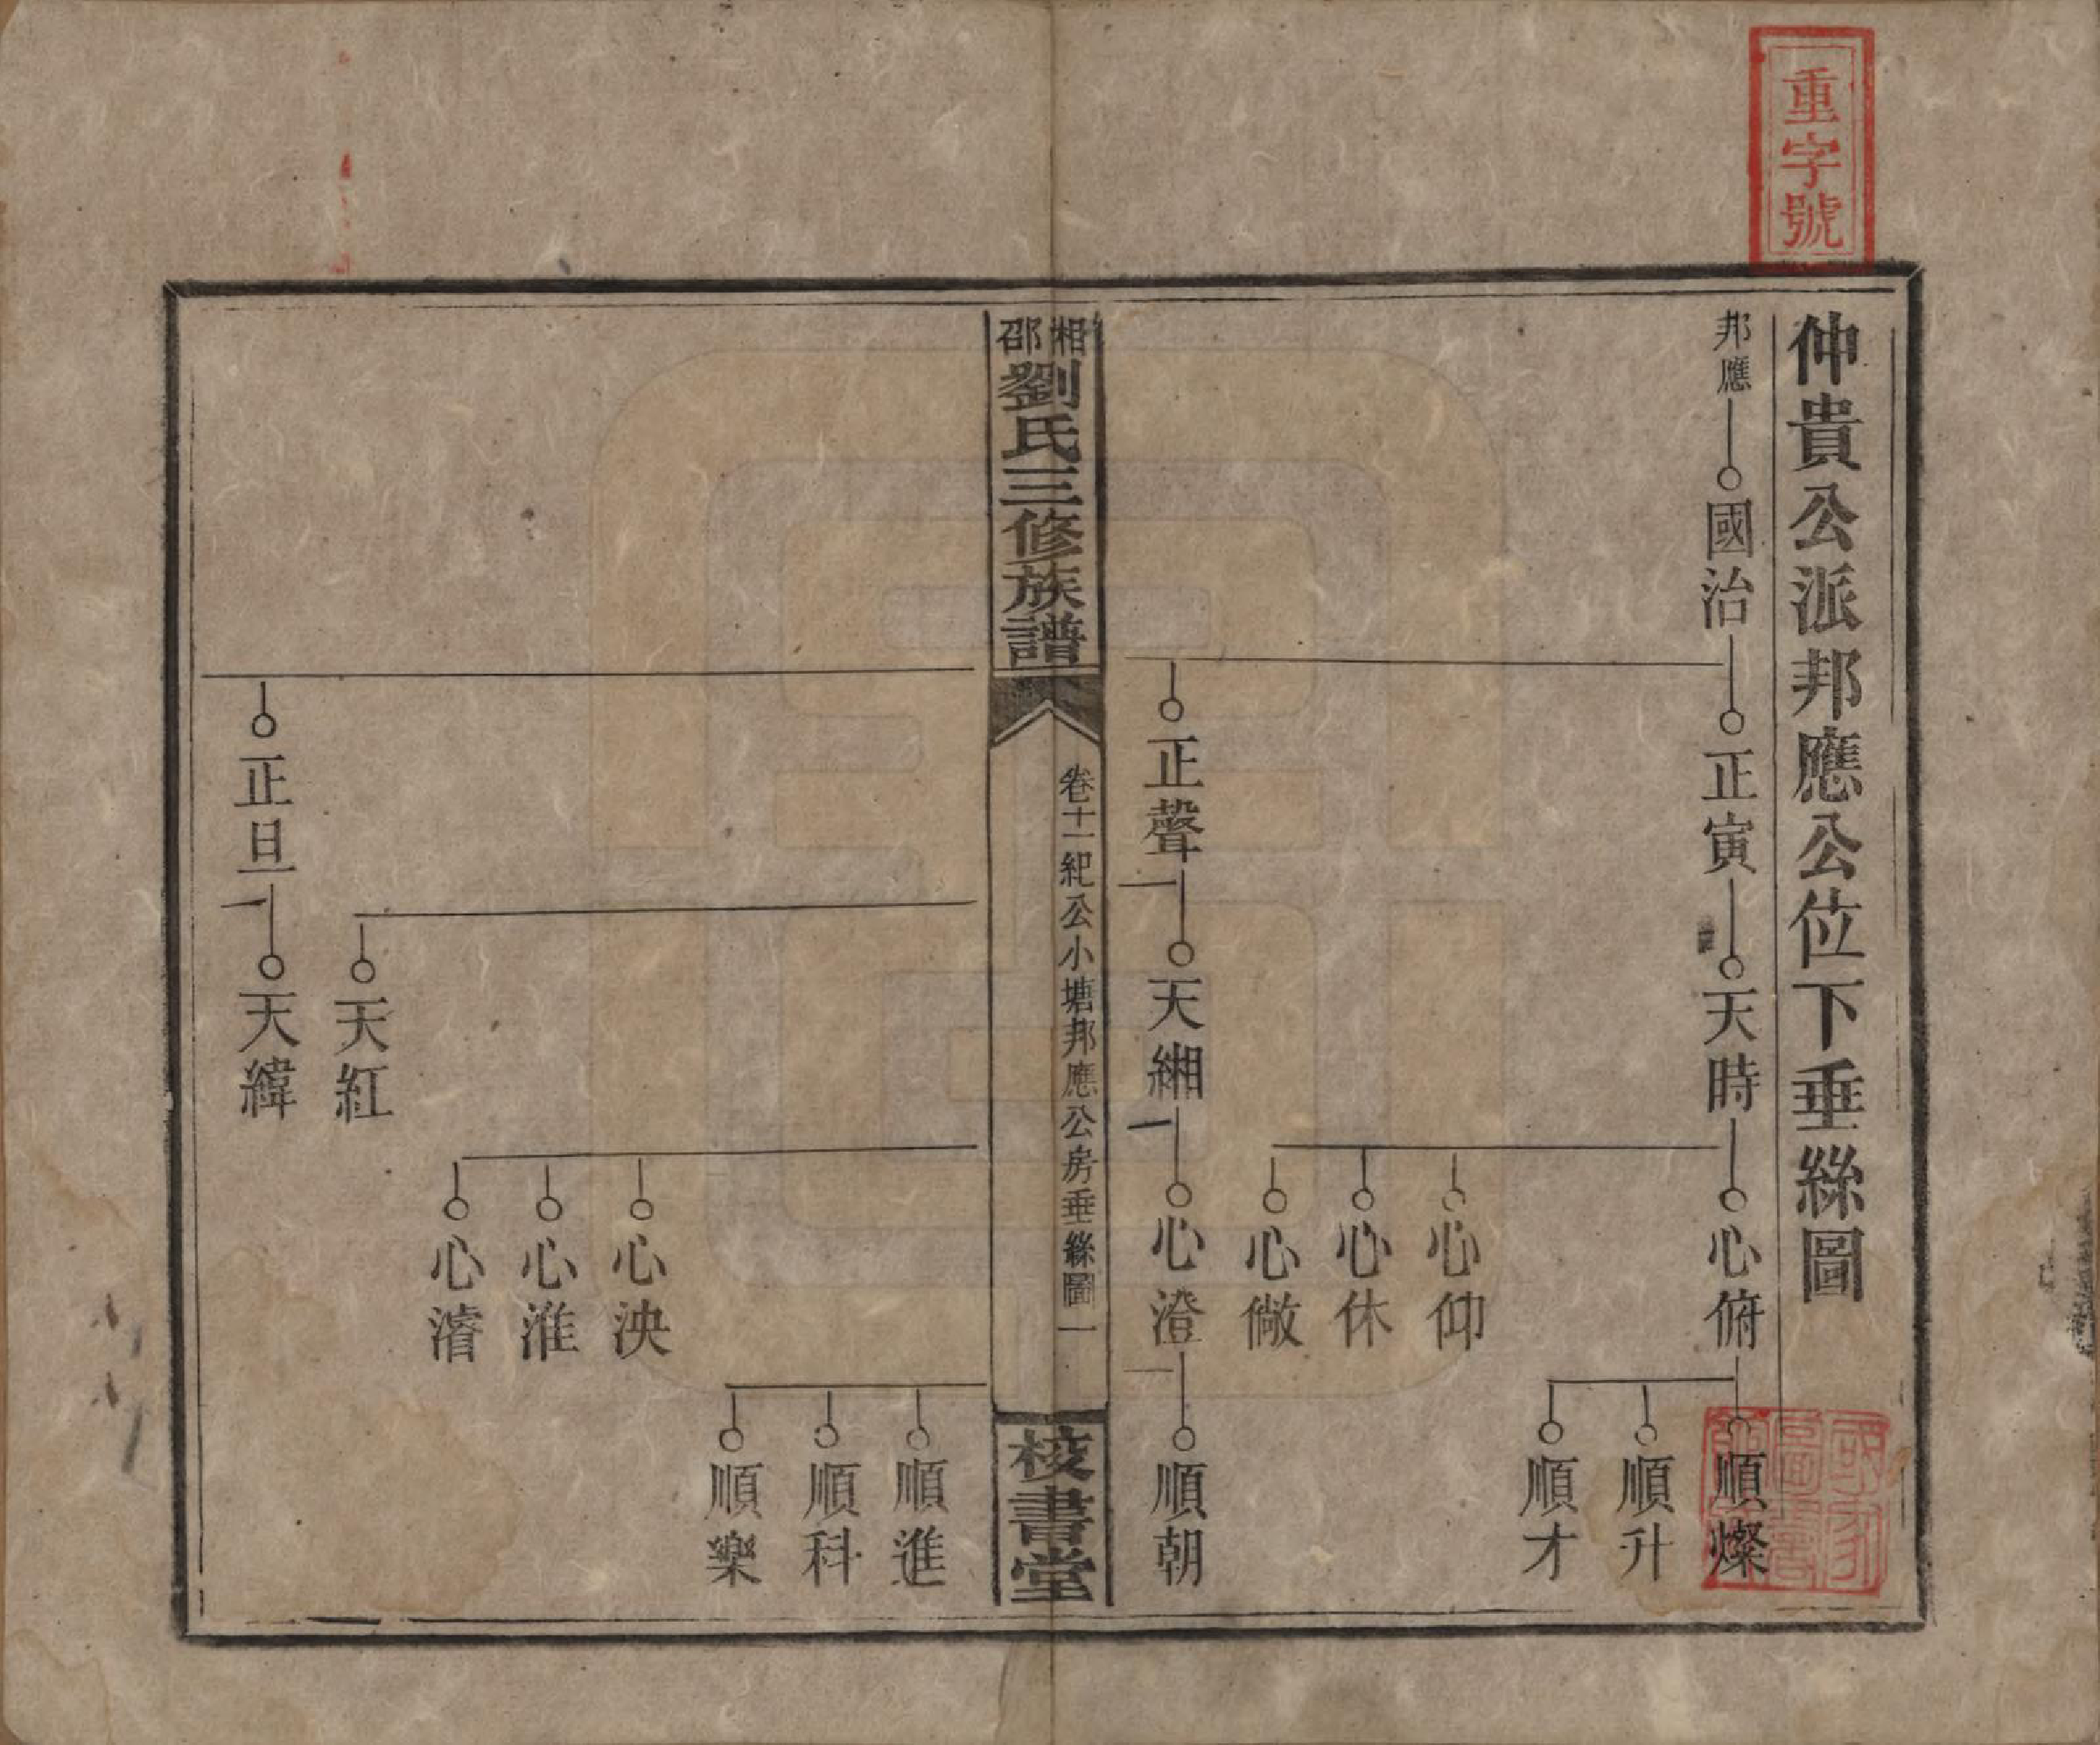 重字號
仲貴公派邦應公位下垂絲圖
邦應
國治
正寅
天時
心俯
順燦
順升
順才
心仰
心休
心儆
正聲
天緗
心澄
順朝
湘邵劉氏三修族譜
卷十一紀公小塘邦應公房垂絲圖一
校書堂
順進
順科
順樂
心泱
心淮
心濬
天紅
正旦
天緯